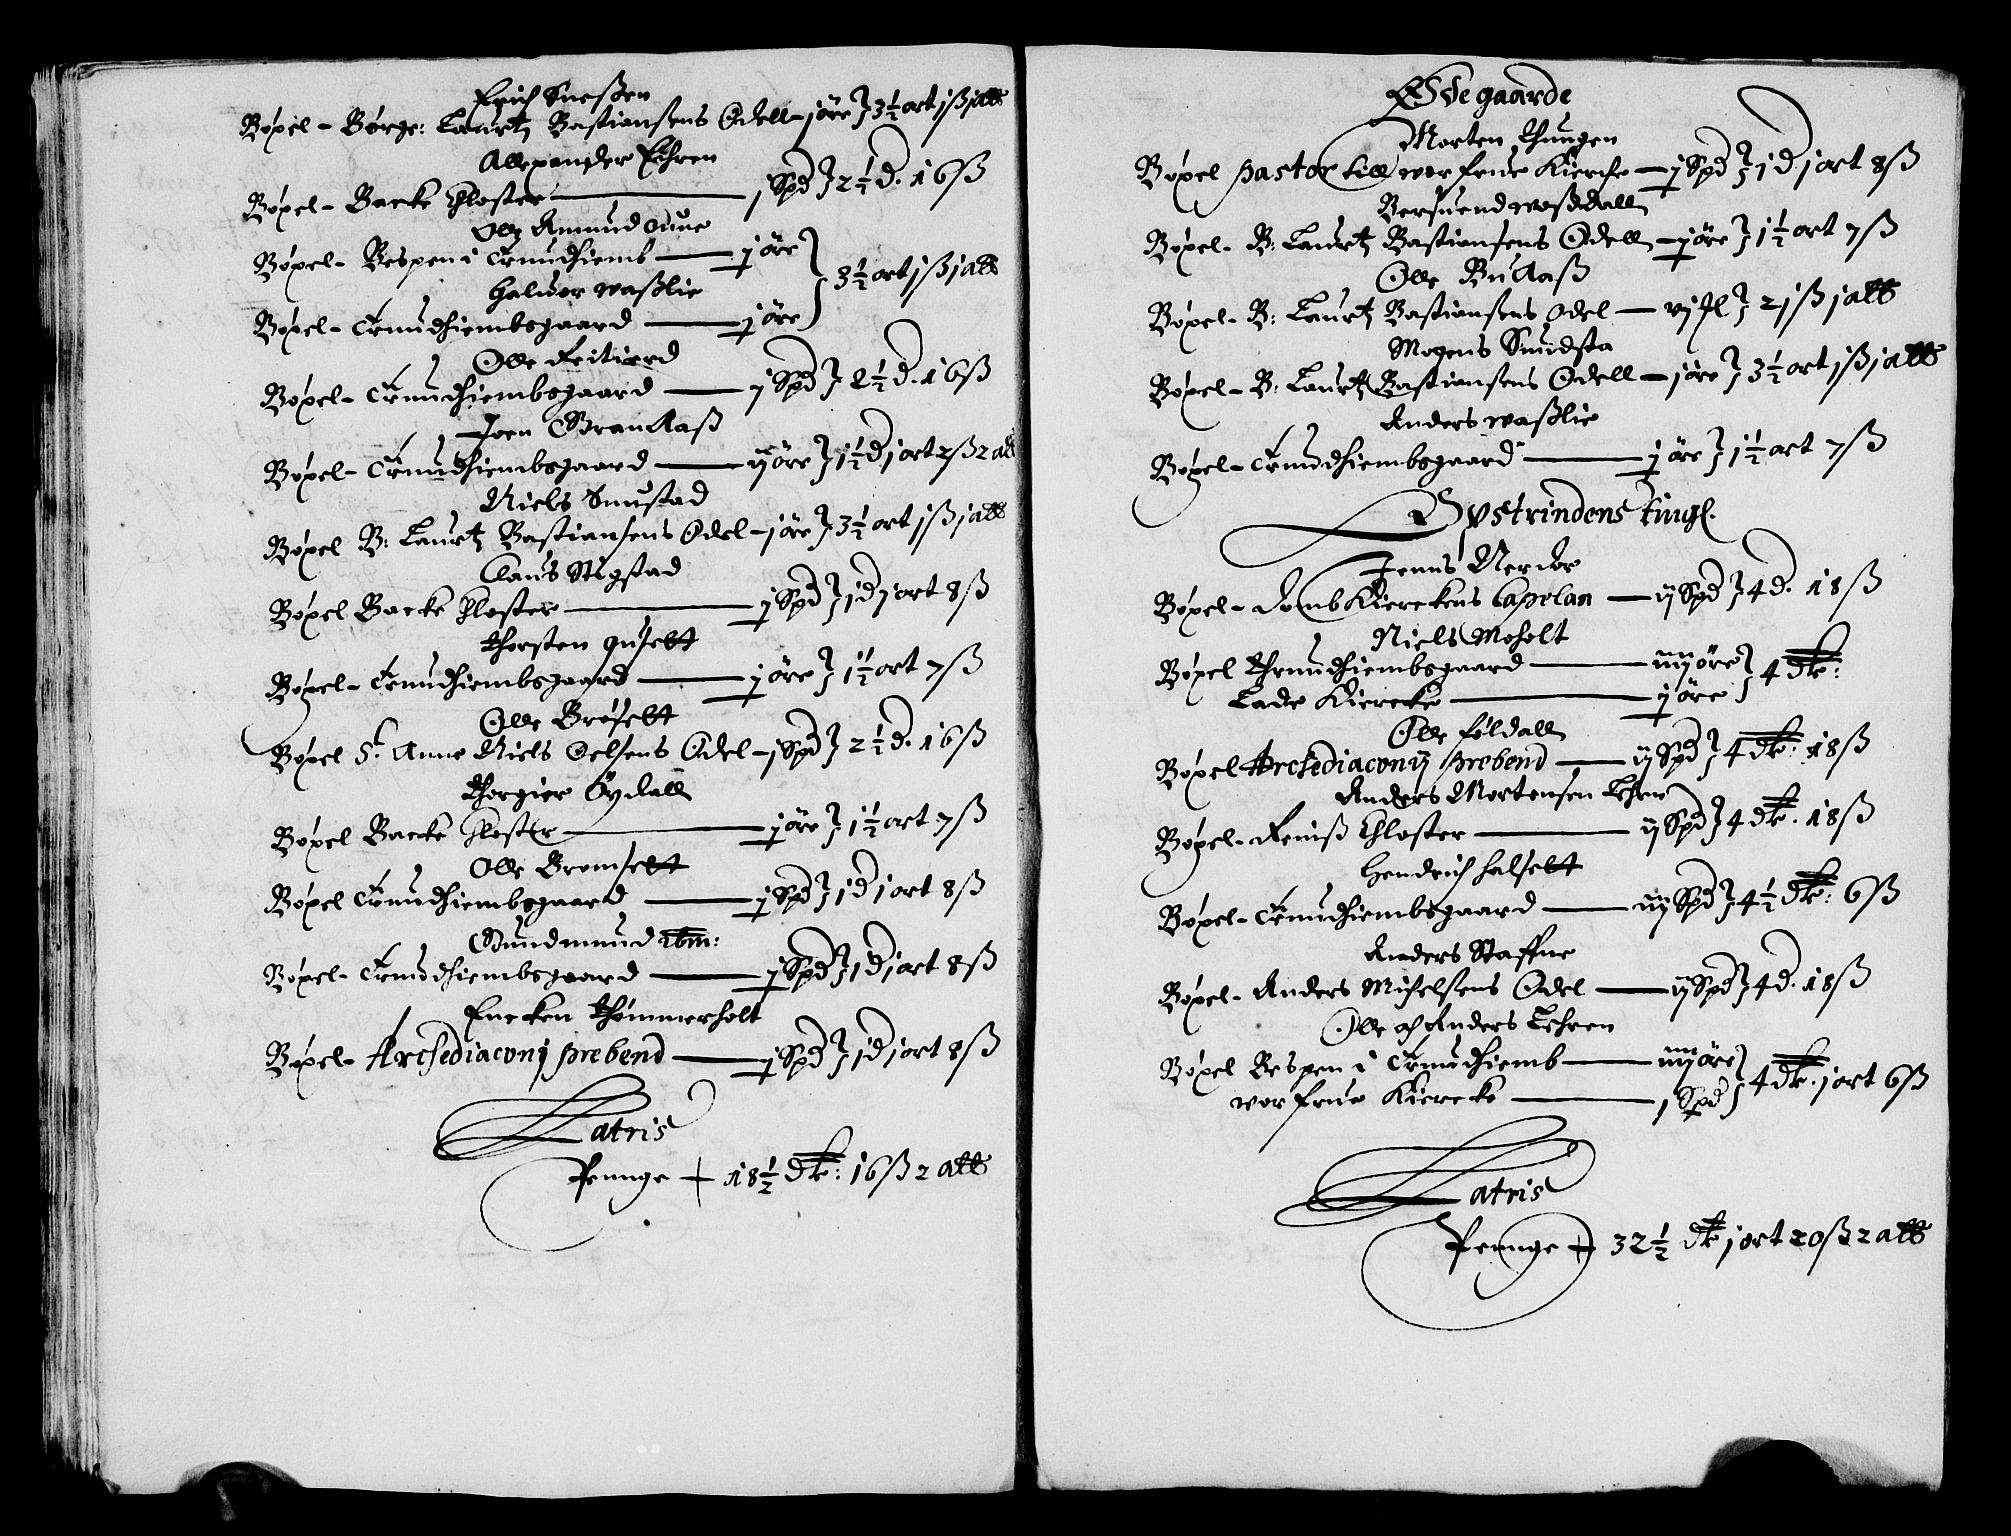 Erich Sneßen
Bøxel - Børge: Laurtz Bastiansens Odell - jøre } 3½ ort jß jalb
Allexander Lehren
Bøxel - Backe Kloster — j Spd } 2½ d. 16ß
Olle Amund
Bøxel - Bespen i Trundhiemb — j øre
Haluor waßlie
Bøxel - Trundhiembsgaard — j øre } 3½ ort jß jalb
Olle Reitierd
Bøxel - Trundhiembsgaard — j Spd } 2½ d. 16ß
Joen Granaaß
Bøxel - Trundhiembsgaard — ij øre } 1½ d jort 2ß 2 alb
Niels Snustad
Bøxel B: Laurtz Bastiansens Odel - jøre } 3½ ort jß jalb
Claus Stugstad
Bøxel Backe Kloster — j Spd } 1d jort 8ß
Thorsten
Bøxel - Trundhiembsgaard — j øre } 1½ ort 7ß
Olle Brøselt
Bøxel St. Anne Niels Oelsens Odel - j Spd } 2½ d. 16ß
Thorgier Øydall
Bøxel Backe Kloster — j øre } 1½ ort 7ß
Olle Bromselt
Bøxel Trundhiembsgaard — j Spd } 1d jort 8ß
Gundmund ibm:
Bøxel - Trundhiembsgaard — j Spd } 1d jort 8ß
Encken Thømmerholt
Bøxel - Archediaconij prebend — j Spd } 1d jort 8ß
Latris
Penge + 18½ dlr: 16ß 2 alb
Ødegaarde
Morten Thungen
Bøxel pastor till wor frue Kierche — j Spd } 1d jort 8ß
Bersuend woßdall
Bøxel - B: Laurtz Bastiansens Odell - jøre } 1½ ort 7ß
Olle Buaaß
Bøxel - B: Laurtz Bastiansens odel — vj } 2jß jalb
Mogens Snudsta
Bøxel - B: Laurtz Bastiansens Odell - jøre } 3½ ort jß jalb
Anders waßlie
Bøxel - Trundhiembsgaard — j øre } 1½ ort 7ß
Strindens tingl.
Jenns Nerdor
Bøxel - Domb Kierckens Capelan — ij Spd } 4d. 18ß
Niels Moholt
Bøxel Thrundhiembsgaard — iiij øre
Lade Kiercke — j øre } 4 dlr:
Olle Føldall
Bøxel Archediaconij prebend — ij Spd } 4 dlr: 18ß
Anders Mortensen Lehren
Bøxel - Reinß Kloster — ij Spd } 4 dlr. 18ß
Hendrich halselt
Bøxel - Trundhiembsgaard — iij Spd } 4½ dlr: 6ß
Anders Staffne
Bøxel - Anders Michelsens Odel — ij Spd } 4d. 18ß
Olle och Anders Lehren
Bøxel Bespen i Trundhiemb — iiij øre
wor frue Kiercke — j Spd } 4 dlr. jort 6ß
Latris
Penge + 32½ dlr jort 20ß 2 alb